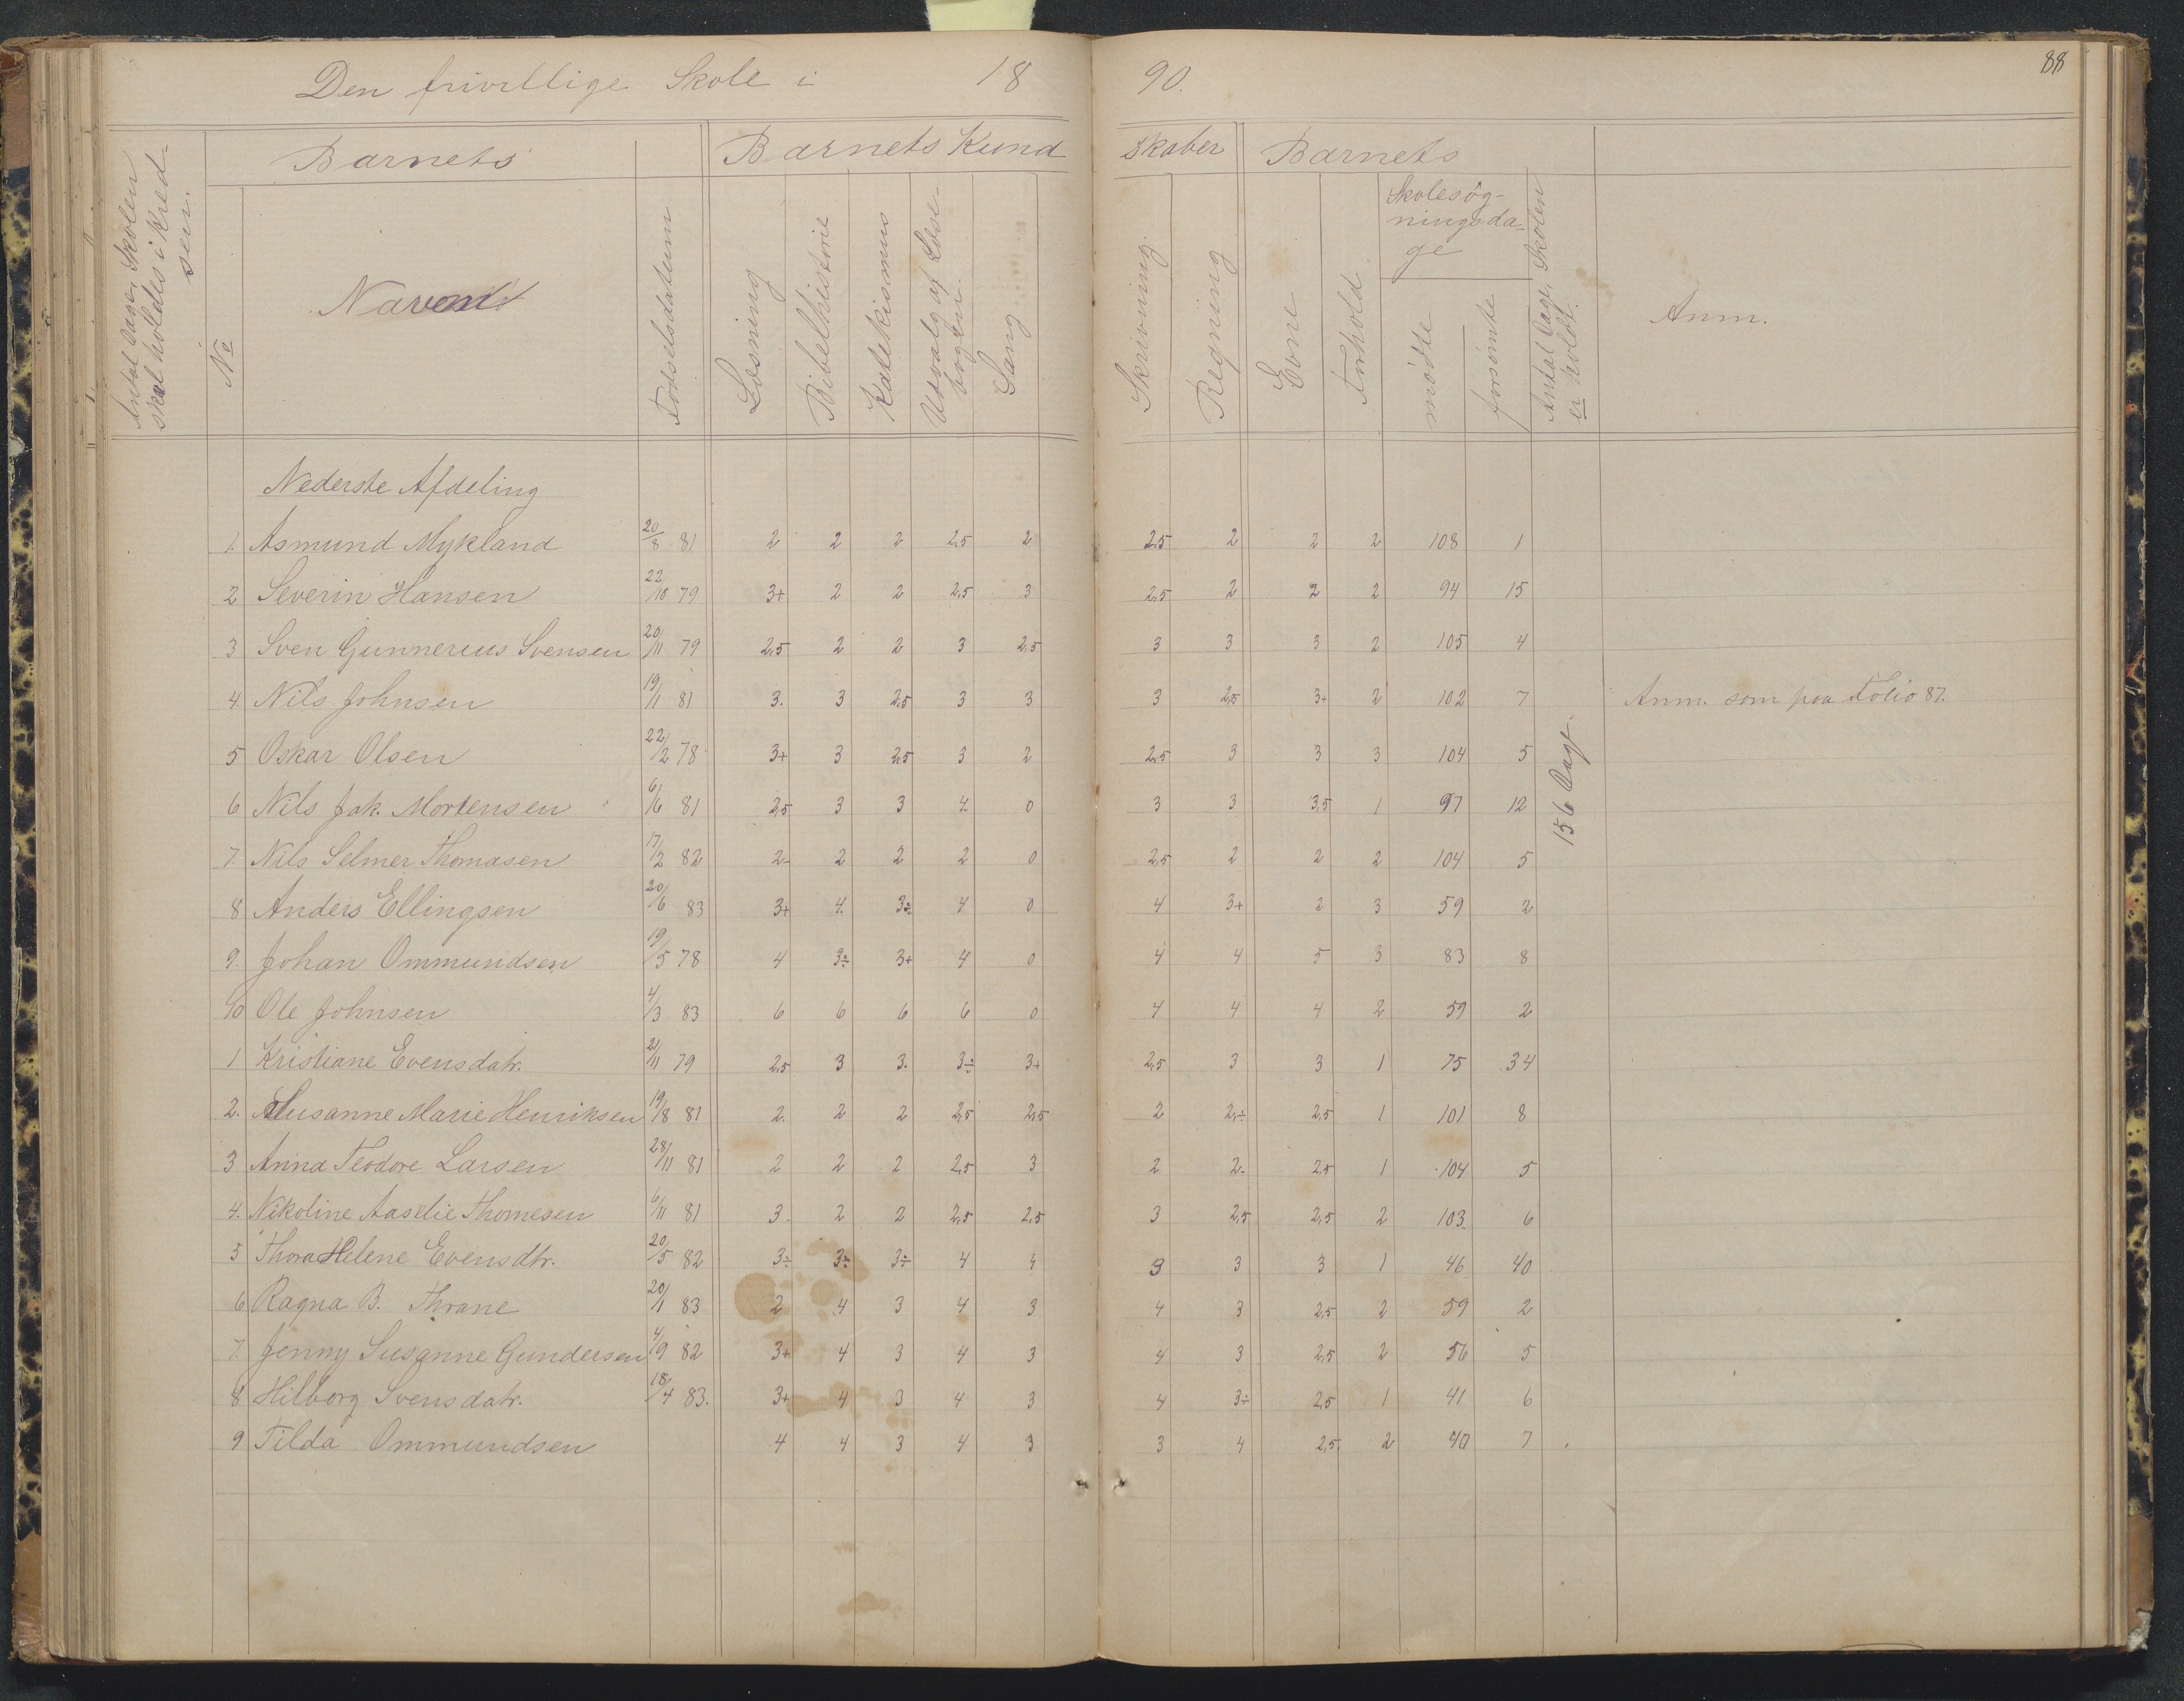 Den frivillige Skole i 1890.
88
Antal Dage, Skolen skal holdes i Kredsen.
No
Barnets
Navn
Fødselsdatum
Barnets Kundskaber
Læsning
Bibelhistorie
Katekismus
Udvalg af Læsebogen.
Sang
Skrivning.
Regning
Barnets
Evne
Forhold.
Skolesøgningsdage
mødte
forsømte
Antal Dage, Skolen er holdt.
Anm.
Nederste Afdeling
1. Asmund Mykland 20/8 81 2 2 2 2,5 2 2,5 2 2 2 108 1
2 Severin Hansen 22/10 79 3+ 2 2 2,5 3 2,5 2 2 2 94 15
3 Sven Gunnerius Svensen 20/11 79 2,5 2 2 3 2,5 3 3 3 2 105 4
4. Nils Johnsen 19/1 81 3. 3 2,5 3 3 3 2,5 3+ 2 102 7 Anm. som paa Folio 87.
5 Oskar Olsen 22/2 78 3+ 3 2,5 3 2 2,5 3 3 3 104 5
6 Nils Jak. Mortensen 6/6 81 2,5 3 3 4 0 3 3 3,5 1 97 12
156 Dage.
7. Nils Selmer Thomasen 17/2 82 2- 2 2 2 0 2,5 2 2 2 104 5
8 Anders Ellingsen 20/6 83 3+ 4. 3÷ 4 0 4 3+ 2 3 59 2
9. Johan Ommundsen 19/5 78 4 3÷ 3+ 4 0 4 4 5 3 83 8
10 Ole Johnsen 4/3 83 6 6 6 6 0 4 4 4 2 59 2
1 Kristiane Evensdatr. 21/11 79 2,5 3 3. 3÷ 3+ 2,5 3 3 1 75 34
2. Susanne Marie Henriksen 19/8 81 2. 2 2 2,5 2,5 2 2÷ 2,5 1 101 8
3 Anna Teodore Larsen 28/11 81 2 2 2 2,5 3 2 2- 2,5 1 104 5
4. Nikoline Thomesen 6/11 81 3. 2 2 2,5 2,5 3 2,5 2,5 2 103 6
5 Thora Helene Evensdtr. 20/5 82 3÷ 3÷ 3÷ 4 4 3 3 3 1 46 40
6 Ragna B. Thrane 20/1 83 2 4 3 4 3 4 3 2,5 2 59 2
7. Jenny Susanne Gundersen 4/9 82 3+ 4 3 4 3 4 3 2,5 2 56 5
8 Hilborg Svensdatr. 18/4 83. 3+ 4 3 4 3 4 3÷ 2,5 1 41 6
9 Tilda Ommundsen 4 4 3 4 3 3 4 2,5 2 40 7